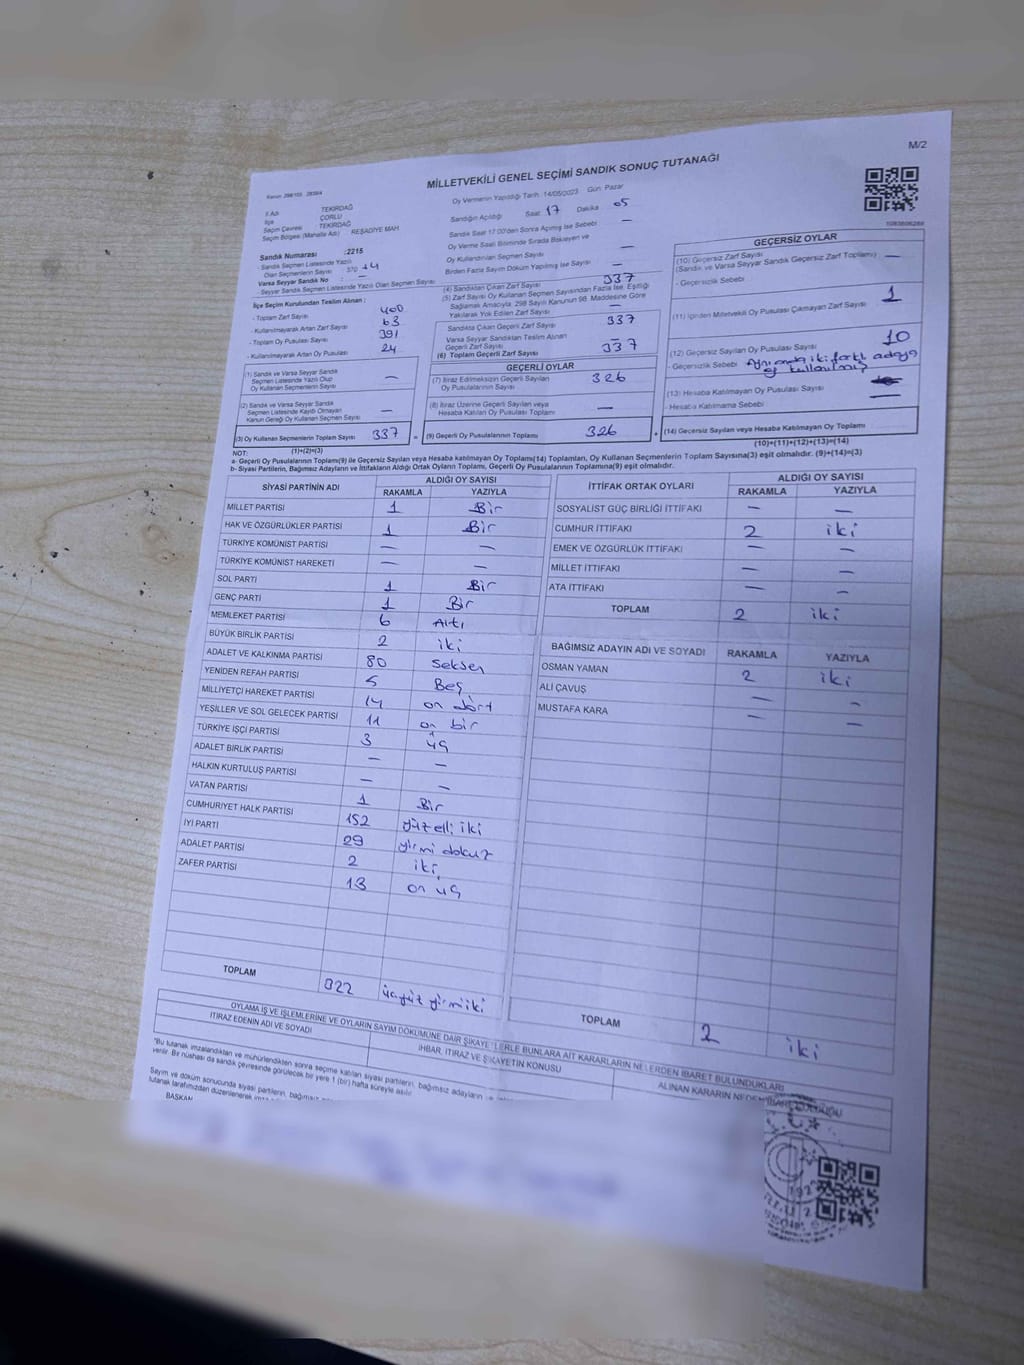 M/2
Kanun: 298/105 2839/4
MİLLETVEKİLİ GENEL SEÇİMİ SANDIK SONUÇ TUTANAĞI
Oy Vermenin Yapıldığı Tarih :14/05/2023 Gün: Pazar
İl Adı TEKİRDAĞ
İlçe ÇORLU
Seçim Çevresi TEKİRDAĞ
Seçim Bölgesi (Mahalle Adı) : REŞADİYE MAH
Sandık Numarası :2215
- Sandık Seçmen Listesinde Yazılı
Olan Seçmenlerin Sayısı 370 +4
Varsa Seyyar Sandık No : —
- Seyyar Sandık Seçmen Listesinde Yazılı Olan Seçmen Sayısı
İlçe Seçim Kurulundan Teslim Alınan :
- Toplam Zarf Sayısı 400
- Kullanılmayarak Artan Zarf Sayısı 63
- Toplam Oy Pusulası Sayısı 391
- Kullanılmayarak Artan Oy Pusulası 24
(1) Sandık ve Varsa Seyyar Sandık
Seçmen Listesinde Yazılı Olup
Oy Kullanan Seçmenlerin Sayısı —
(2) Sandık ve Varsa Seyyar Sandık
Seçmen Listesinde Kayıtlı Olmayan
Kanun Gereği Oy Kullanan Seçmen Sayısı —
(3) Oy Kullanan Seçmenlerin Toplam Sayısı 337
(1)+(2)=(3)
Sandığın Açıldığı Saat: 17 Dakika 05
Sandık Saat 17.00'den Sonra Açılmış İse Sebebi —
Oy Verme Saati Bitiminde Sırada Bekleyen ve
Oy Kullandırılan Seçmen Sayısı —
Birden Fazla Sayım Döküm Yapılmış İse Sayısı —
(4) Sandıktan Çıkan Zarf Sayısı 337
(5) Zarf Sayısı Oy Kullanan Seçmen Sayısından Fazla İse, Eşitliği
Sağlamak Amacıyla, 298 Sayılı Kanunun 98. Maddesine Göre
Yakılarak Yok Edilen Zarf Sayısı —
Sandıkta Çıkan Geçerli Zarf Sayısı 337
Varsa Seyyar Sandıktan Teslim Alınan
Geçerli Zarf Sayısı —
(6) Toplam Geçerli Zarf Sayısı 337
GEÇERLİ OYLAR
(7) İtiraz Edilmeksizin Geçerli Sayılan
Oy Pusulalarının Sayısı 326
(8) İtiraz Üzerine Geçerli Sayılan veya
Hesaba Katılan Oy Pusulası Toplamı —
= (9) Geçerli Oy Pusulalarının Toplamı 326
1083606289
GEÇERSİZ OYLAR
(10) Geçersiz Zarf Sayısı
(Sandık ve Varsa Seyyar Sandık Geçersiz Zarf Toplamı) —
- Geçersizlik Sebebi
(11) İçinden Milletvekili Oy Pusulası Çıkmayan Zarf Sayısı 1
(12) Geçersiz Sayılan Oy Pusulası Sayısı 10
- Geçersizlik Sebebi Aynı anda iki farklı adaya
oy kullanılmış
(13) Hesaba Katılmayan Oy Pusulası Sayısı —
- Hesaba Katılmama Sebebi
+ (14) Geçersiz Sayılan veya Hesaba Katılmayan Oy Toplamı
(10)+(11)+(12)+(13)=(14)
NOT:
a- Geçerli Oy Pusulalarının Toplamı(9) ile Geçersiz Sayılan veya Hesaba katılmayan Oy Toplamı(14) Toplamları, Oy Kullanan Seçmenlerin Toplam Sayısına(3) eşit olmalıdır. (9)+(14)=(3)
b- Siyasi Partilerin, Bağımsız Adayların ve İttifakların Aldığı Ortak Oyların Toplamı, Geçerli Oy Pusulalarının Toplamına(9) eşit olmalıdır.
SİYASİ PARTİNİN ADI ALDIĞI OY SAYISI
RAKAMLA YAZIYLA
MİLLET PARTİSİ 1 Bir
HAK VE ÖZGÜRLÜKLER PARTİSİ 1 Bir
TÜRKİYE KOMÜNİST PARTİSİ — —
TÜRKİYE KOMÜNİST HAREKETİ — —
SOL PARTİ 1 Bir
GENÇ PARTİ 1 Bir
MEMLEKET PARTİSİ 6 Altı
BÜYÜK BİRLİK PARTİSİ 2 iki
ADALET VE KALKINMA PARTİSİ 80 Seksen
YENİDEN REFAH PARTİSİ 5 Beş
MİLLİYETÇİ HAREKET PARTİSİ 14 on dört
YEŞİLLER VE SOL GELECEK PARTİSİ 11 on bir
TÜRKİYE İŞÇİ PARTİSİ 3 üç
ADALET BİRLİK PARTİSİ — —
HALKIN KURTULUŞ PARTİSİ — —
VATAN PARTİSİ 1 Bir
CUMHURİYET HALK PARTİSİ 152 yüzelli iki
İYİ PARTİ 29 yirmi dokuz
ADALET PARTİSİ 2 iki
ZAFER PARTİSİ 13 on üç
TOPLAM 322 üçyüz yirmi iki
İTTİFAK ORTAK OYLARI ALDIĞI OY SAYISI
RAKAMLA YAZIYLA
SOSYALİST GÜÇ BİRLİĞİ İTTİFAKI — —
CUMHUR İTTİFAKI 2 iki
EMEK VE ÖZGÜRLÜK İTTİFAKI — —
MİLLET İTTİFAKI — —
ATA İTTİFAKI — —
TOPLAM 2 iki
BAĞIMSIZ ADAYIN ADI VE SOYADI RAKAMLA YAZIYLA
OSMAN YAMAN 2 iki
ALİ ÇAVUŞ — —
MUSTAFA KARA — —
TOPLAM 2 iki
OYLAMA İŞ VE İŞLEMLERİNE VE OYLARIN SAYIM DÖKÜMÜNE DAİR ŞİKAYETLERLE BUNLARA AİT KARARLARIN NELERDEN İBARET BULUNDUKLARI
İTİRAZ EDENİN ADI VE SOYADI İHBAR, İTİRAZ VE ŞİKAYETİN KONUSU ALINAN KARARIN NEDEN İBARET OLDUĞU
"Bu tutanak imzalandıktan ve mühürlendikten sonra seçime katılan siyasi partilerin, bağımsız adayların ve
verilir. Bir nüshası da sandık çevresinde görülecek bir yere 1 (bir) hafta süreyle asılır.
Sayım ve döküm sonucunda siyasi partilerin, bağımsız
tutanak tarafımızdan düzenlenerek imza
BAŞKAN